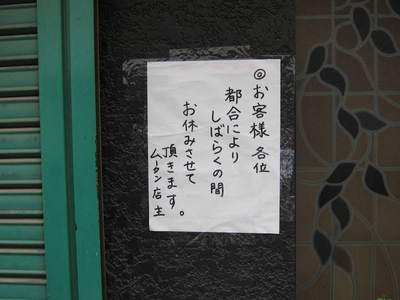 ◎お客様各位
都合により
しばらくの間
お休みさせて
頂きます。
ムーラン店主